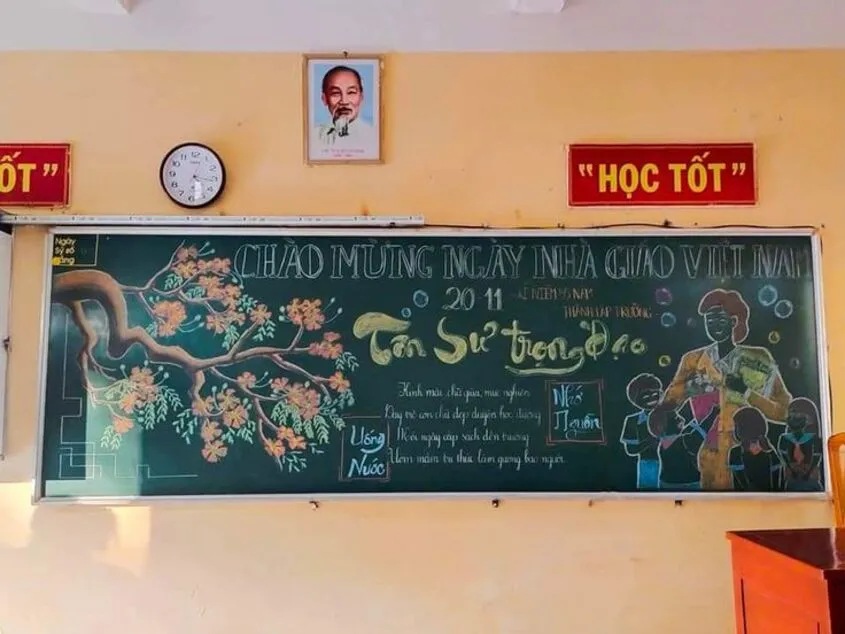 ỐT”
“HỌC TỐT”
Ngày
Sỹ số
Vắng
CHÀO MỪNG NGÀY NHÀ GIÁO VIỆT NAM
20-11
KỈ NIỆM 35 NĂM
THÀNH LẬP TRƯỜNG
Tôn Sư trọng Đạo
Kính mái chữ giữa, mực nghiên
Dạy trò con chữ đẹp duyên học đường
Mỗi ngày cắp sách đến trường
Ươm mầm tri thức làm gương bao người
Uống
Nước
Nhớ
Nguồn